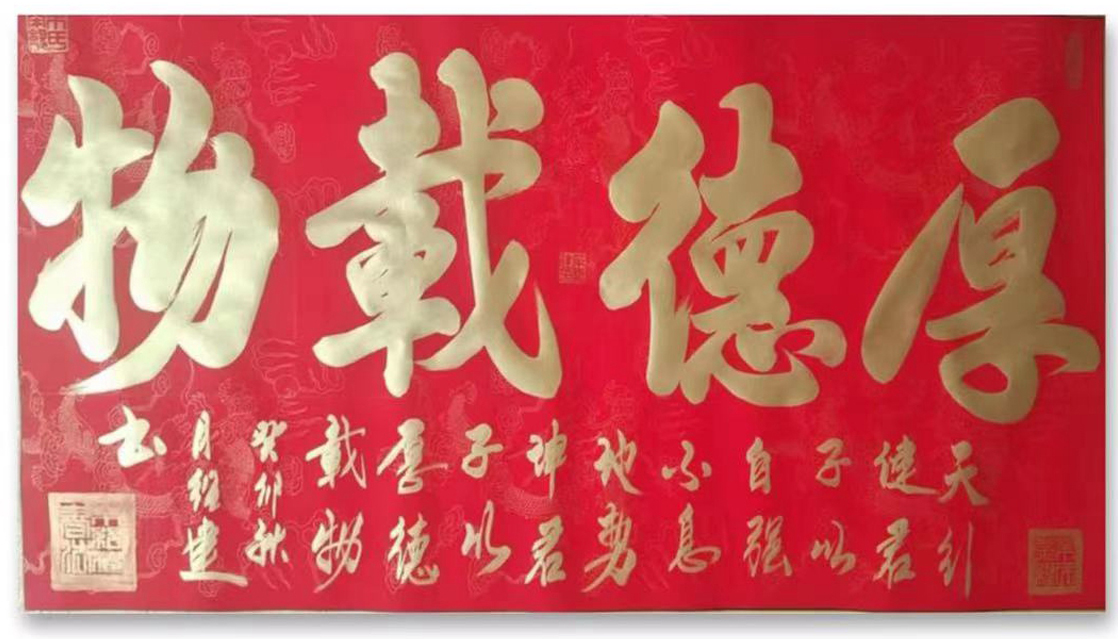 厚德載物
天行
健君
子以
自强
不息
地势
坤君
子以
厚德
載物
癸卯秋
月绍建
书